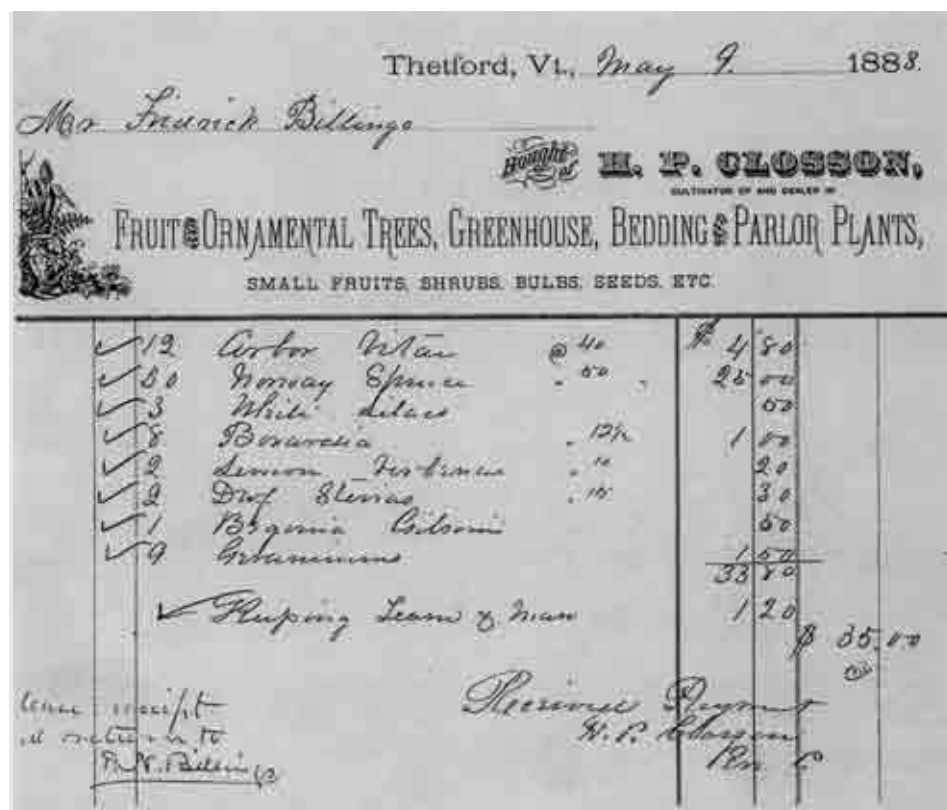 Thetford, Vt., May 9. 1888.
Mr Fredrick Billings
Bought of H. P. CLOSSON,
CULTIVATOR OF AND DEALER IN
FRUIT AND ORNAMENTAL TREES, GREENHOUSE, BEDDING AND PARLOR PLANTS,
SMALL FRUITS, SHRUBS, BULBS, SEEDS, ETC.
12 Arbor Vitae @ 40 $ 4 80
50 Norway Spruce " 50 " 25 00
3 White Lilacs 50
8 Bouvardia " 12½ 1 00
2 Lemon Verbenas " 10 20
2 Drf " 15 30
1 Begonia 50
9 Geraniums 1 50
33 80
Keeping Team & Man 1 20
$ 35.00
Received Payment
H. P. Closson
Per C
receipt
return to
F. N. Billings